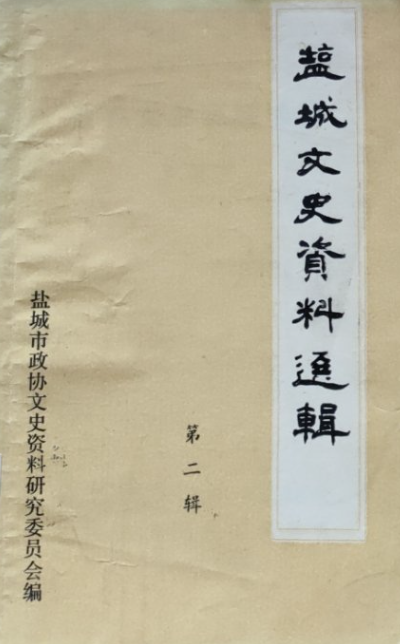 盐城文史資料選輯
第二辑
盐城市政协文史资料研究委员会编